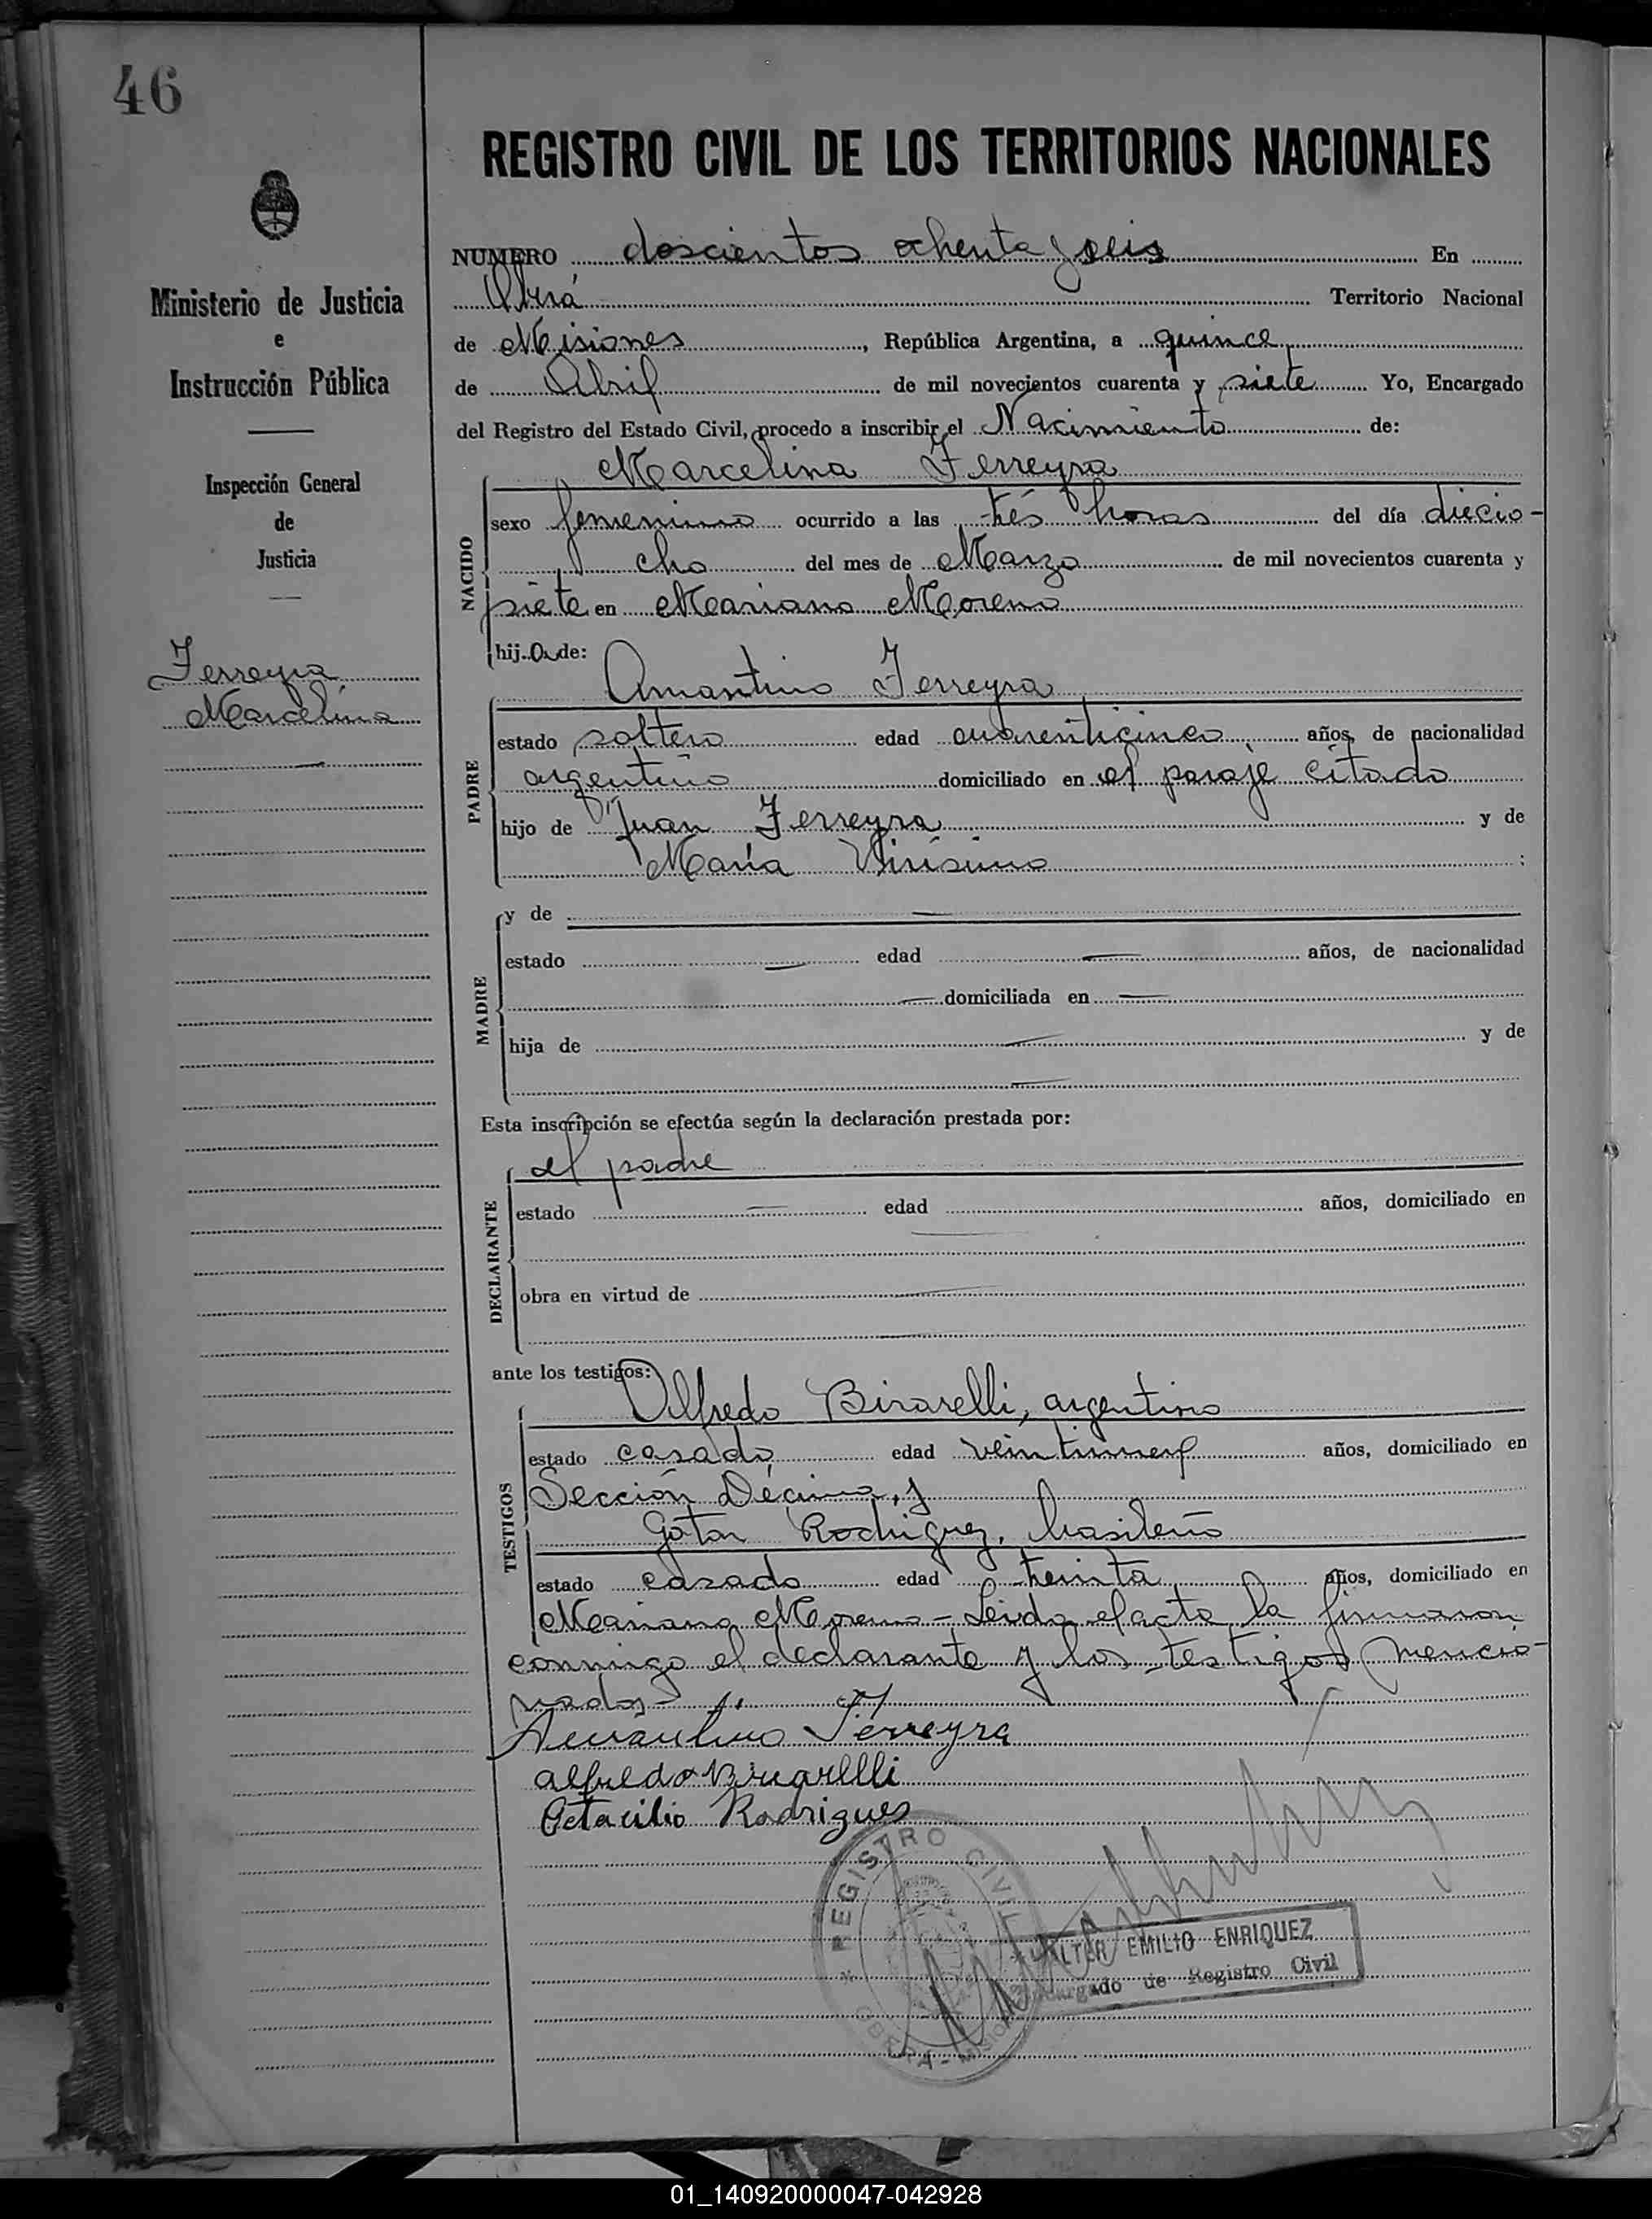 46
REGISTRO CIVIL DE LOS TERRITORIOS NACIONALES
Ministerio de Justicia
e
Instrucción Pública
Inspección General
de
Justicia
Ferreyra
Marcelina
NUMERO doscientos ochenta y seis En
Oberá Territorio Nacional
de Misiones, República Argentina, a quince
de Abril de mil novecientos cuarenta y siete Yo, Encargado
del Registro del Estado Civil, procedo a inscribir el Nacimiento de:
Marcelina Ferreyra
NACIDO
sexo femenino ocurrido a las trés horas del día diecio-
cho del mes de Marzo de mil novecientos cuarenta y
siete en Mariano Moreno
hija de:
Amantino Ferreyra
PADRE
estado soltero edad cuarenticinco años, de nacionalidad
argentino domiciliado en el paraje citado
hijo de Juan Ferreyra y de
María ;
MADRE
y de
estado edad años, de nacionalidad
domiciliada en
hija de y de
Esta inscripción se efectúa según la declaración prestada por:
DECLARANTE
el padre
estado edad años, domiciliado en
obra en virtud de
ante los testigos:
TESTIGOS
Alfredo Birarelli, argentino
estado casado edad veintinueve años, domiciliado en
Sección Décima, y
Rodriguez, brasileño
estado casado edad treinta años, domiciliado en
Mariano Moreno - Leida el acta la firmaron
conmigo el declarante y los testigos mencio-
nados -
Amantino Ferreyra
Alfredo Birarelli
Octacilio Rodrigues
REGISTRO CIVIL
OBERA - MISIONES
WALTER EMILIO ENRIQUEZ
Encargado de Registro Civil
01_140920000047-042928